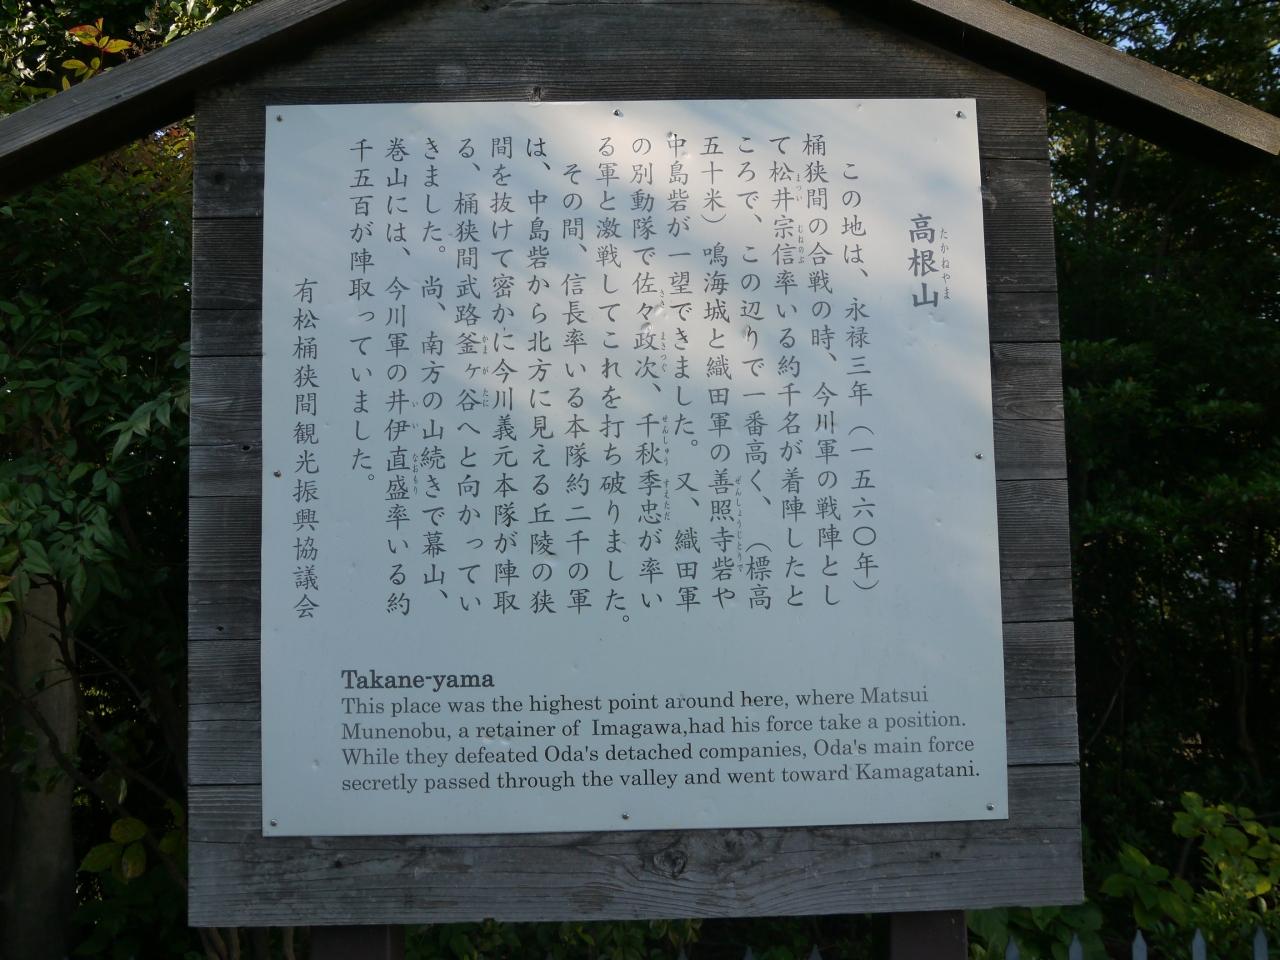 高根山
たかねやま
この地は、永禄三年（一五六〇年）
桶狭間の合戦の時、今川軍の戦陣とし
て松井宗信率いる約千名が着陣したと
ころで、この辺りで一番高く、（標高
五十米）鳴海城と織田軍の善照寺砦や
中島砦が一望できました。又、織田軍
の別動隊で佐々政次、千秋季忠が率い
る軍と激戦してこれを打ち破りました。
その間、信長率いる本隊約二千の軍
は、中島砦から北方に見える丘陵の狭
間を抜けて密かに今川義元本隊が陣取
る、桶狭間武路釜ヶ谷へと向かってい
きました。尚、南方の山続きで幕山、
巻山には、今川軍の井伊直盛率いる約
千五百が陣取っていました。
有松桶狭間観光振興協議会
Takane-yama
This place was the highest point around here, where Matsui
Munenobu, a retainer of Imagawa,had his force take a position.
While they defeated Oda's detached companies, Oda's main force
secretly passed through the valley and went toward Kamagatani.